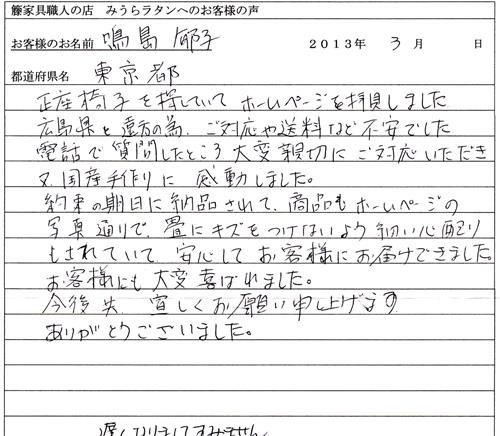 籐家具職人の店　みうらラタンへのお客様の声
お客様のお名前　鳴島 郁子　2013年 3月　日
都道府県名　東京都
正座椅子を探していて ホームページを拝見しました
広島県と遠方の為、ご対応や送料など不安でした
電話で質問したところ 大変親切にご対応いただき
又、国産手作りに 感動しました。
約束の期日に納品されて、商品もホームページの
写真通りで、畳にキズをつけないよう細い心配り
もされていて、安心して お客様にお届けできました。
お客様にも 大変喜ばれました。
今後共 宜しくお願い申し上げます
ありがとうございました。
遅くなりましてすみません